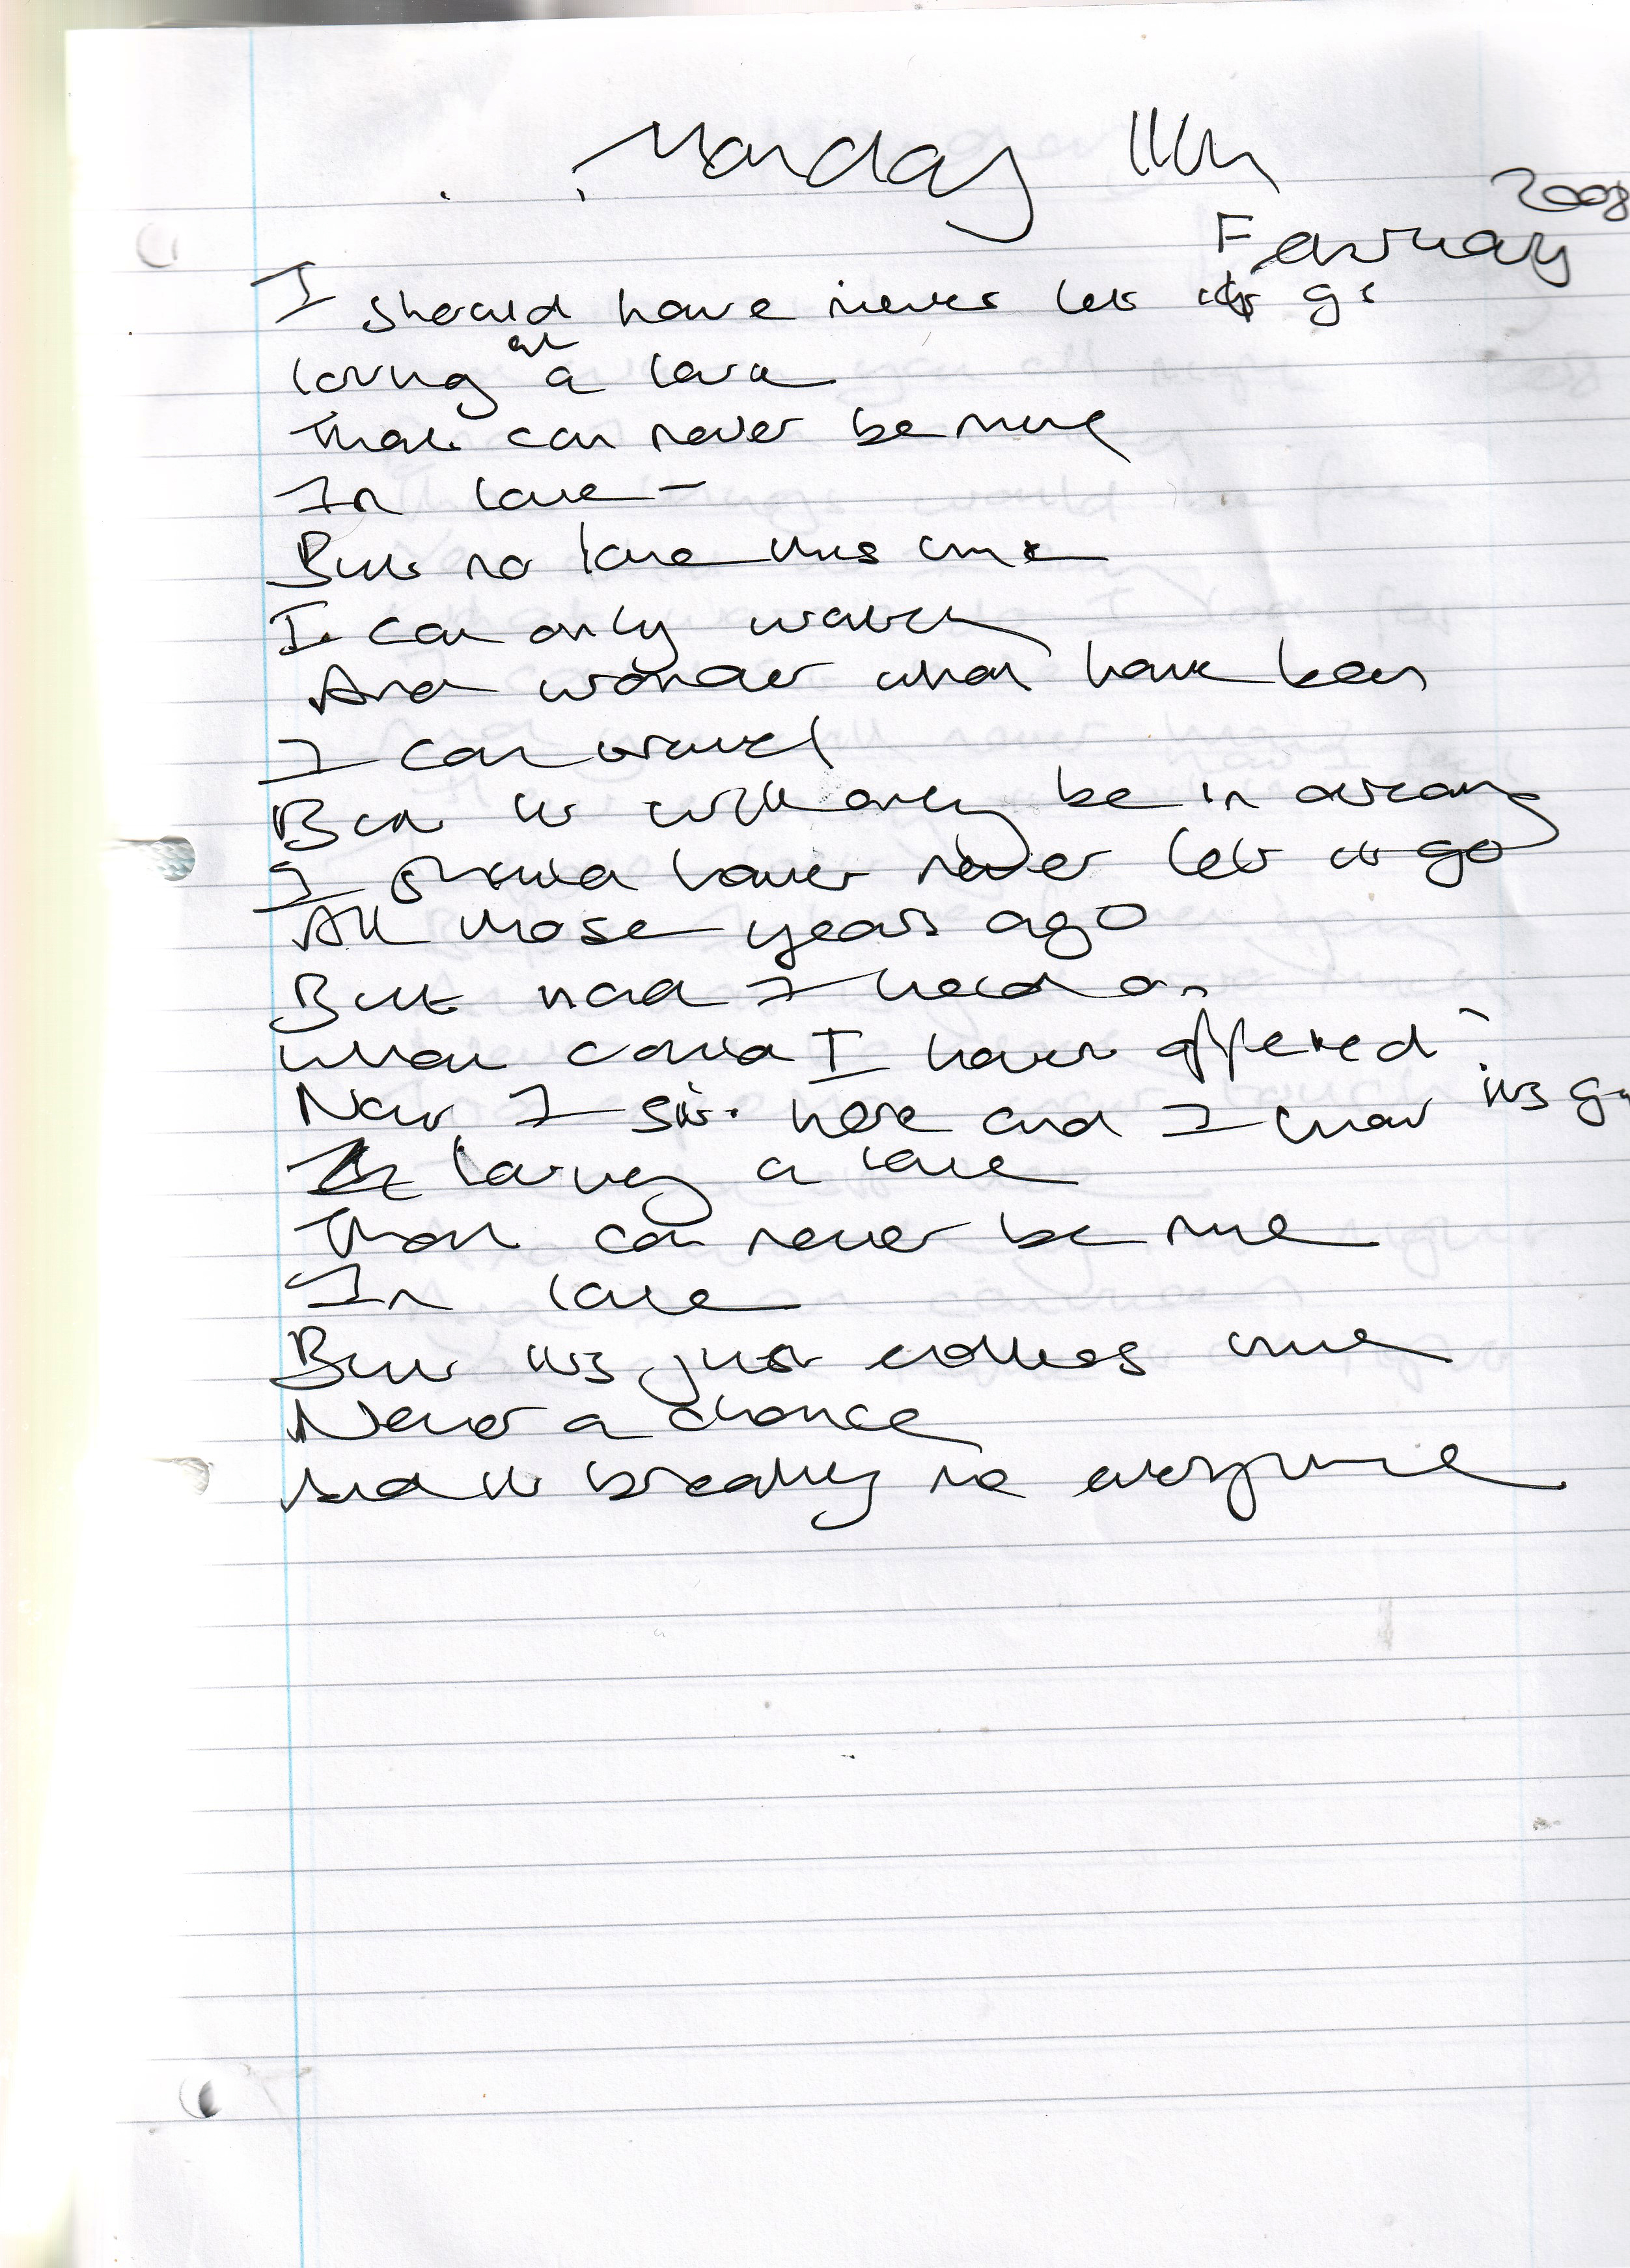 Monday 11th
2008
February
I should have never let it go
loving a love
That can never be mine
In love -
But no love this time
I can only watch
And wonder what have been
I can travel
But it will only be in dreams
I should have never let it go
All those years ago
But had I held on
What could I have offered?
Now I sit here and I know its
loving a love
That can never be mine
In love
But its just endless time
Never a chance
And it breaking me everytime